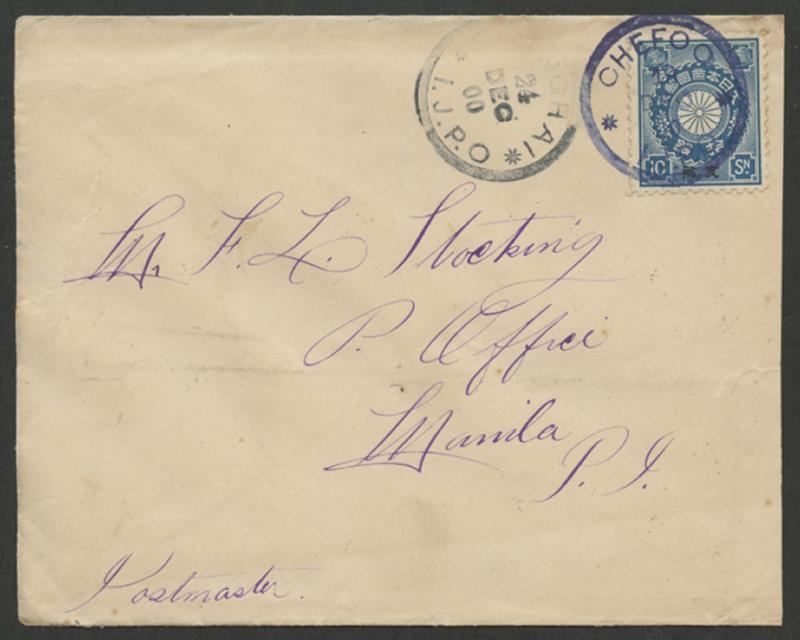 CHEFOO
NGHAI
24
DEC
00
I.J.P.O
大日本帝國郵便
10 SN
支那
M. F. L. Stocking
P. Office
Manila
P. I.
Postmaster.